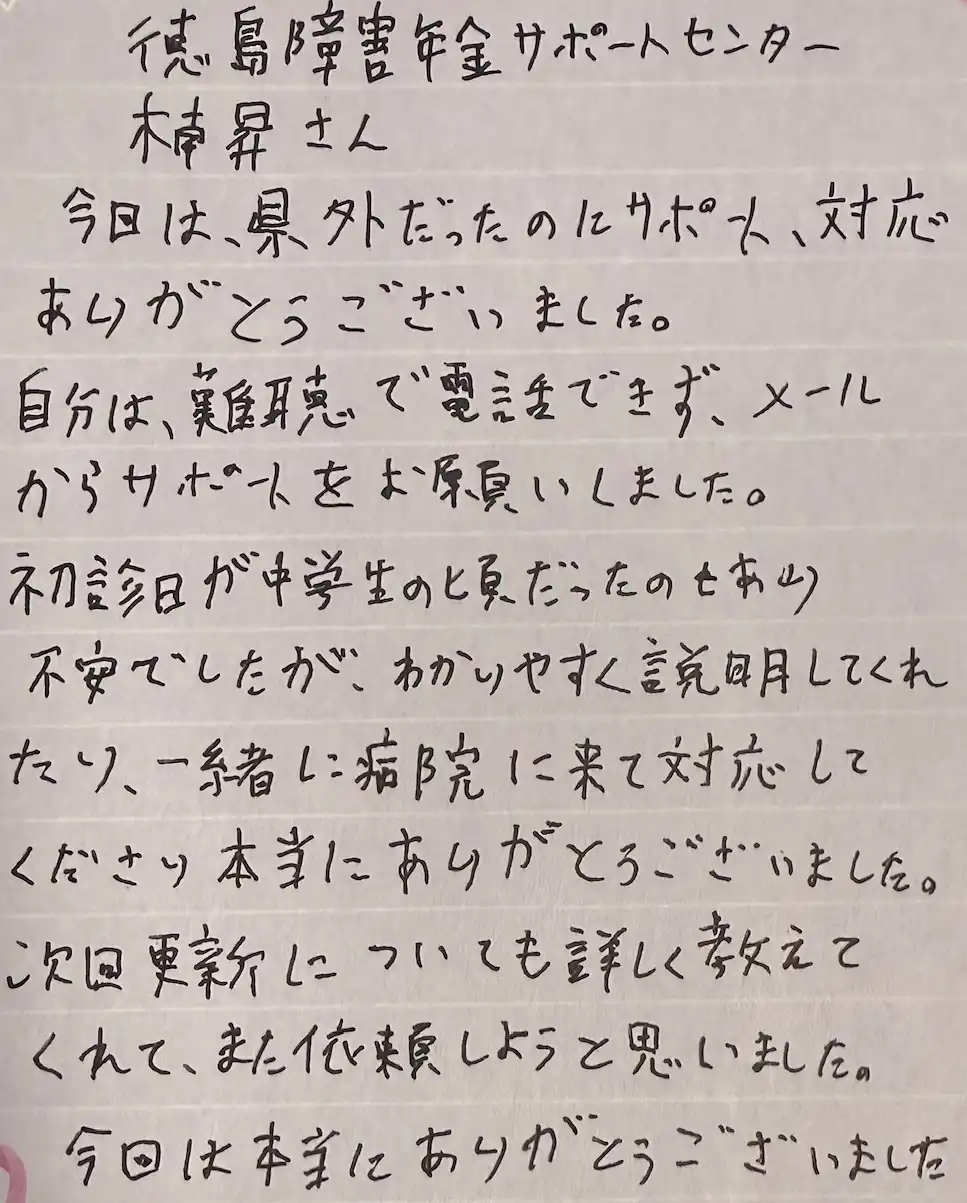 徳島障害年金サポートセンター
楠昇さん
今日は、県外だったのにサポート、対応
ありがとうございました。
自分は、難聴で電話できず、メール
からサポートをお願いしました。
初診日が中学生の頃だったのもあり
不安でしたが、わかりやすく説明してくれ
たり、一緒に病院に来て対応して
くださり本当にありがとうございました。
次回更新についても詳しく教えて
くれて、また依頼しようと思いました。
今回は本当にありがとうございました